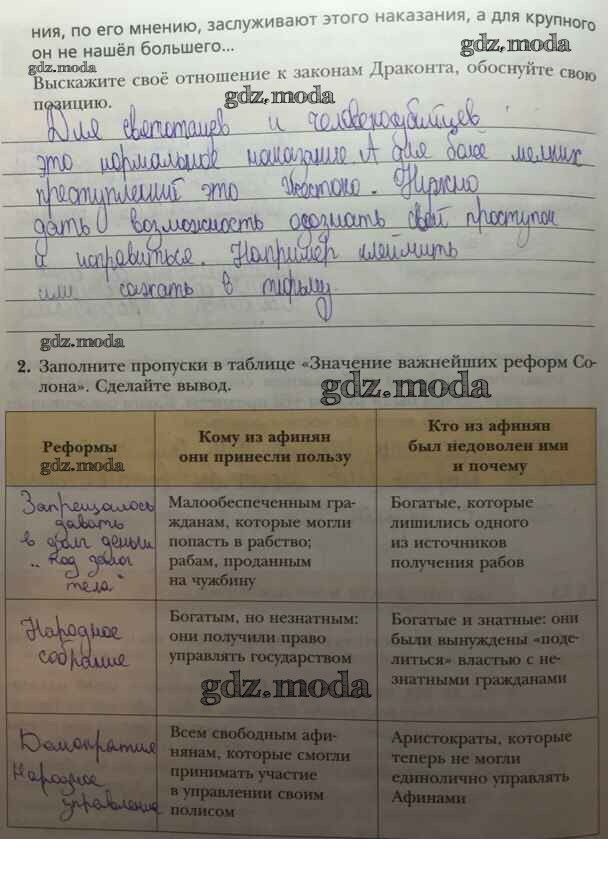 ния, по его мнению, заслуживают этого наказания, а для крупного
он не нашёл большего...
gdz.moda
Выскажите своё отношение к законам Драконта, обоснуйте свою
позицию.
gdz.moda
gdz.moda
Для святотацев и человекоубийцев
это нормальное наказание. А для более мелких
преступлений это жестоко. Нужно
дать возможность осознать свой проступок
и исправиться. Например клеймить
или сажать в тюрьму.
gdz.moda
2. Заполните пропуски в таблице «Значение важнейших реформ Со-
лона». Сделайте вывод.
gdz.moda
Реформы
gdz.moda
Кому из афинян
они принесли пользу
Кто из афинян
был недоволен ими
и почему
Запрещалось
давать
в долг деньги
"под залог
тела"
Малообеспеченным гра-
жданам, которые могли
попасть в рабство;
рабам, проданным
на чужбину
Богатые, которые
лишились одного
из источников
получения рабов
Народное
собрание
Богатым, но незнатным:
они получили право
управлять государством
gdz.moda
Богатые и знатные: они
были вынуждены «поде-
литься» властью с не-
знатными гражданами
Демократия
Народное
управление
Всем свободным афи-
нянам, которые смогли
принимать участие
в управлении своим
полисом
Аристократы, которые
теперь не могли
единолично управлять
Афинами